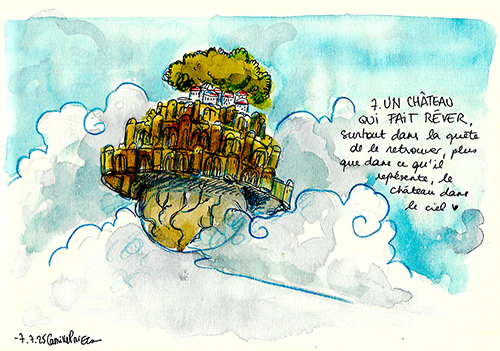 7. UN CHÂTEAU
QUI FAIT RÊVER,
surtout dans la quête
de le retrouver, plus
que dans ce qu'il
représente, le
château dans
le ciel ♥
-7.7.25